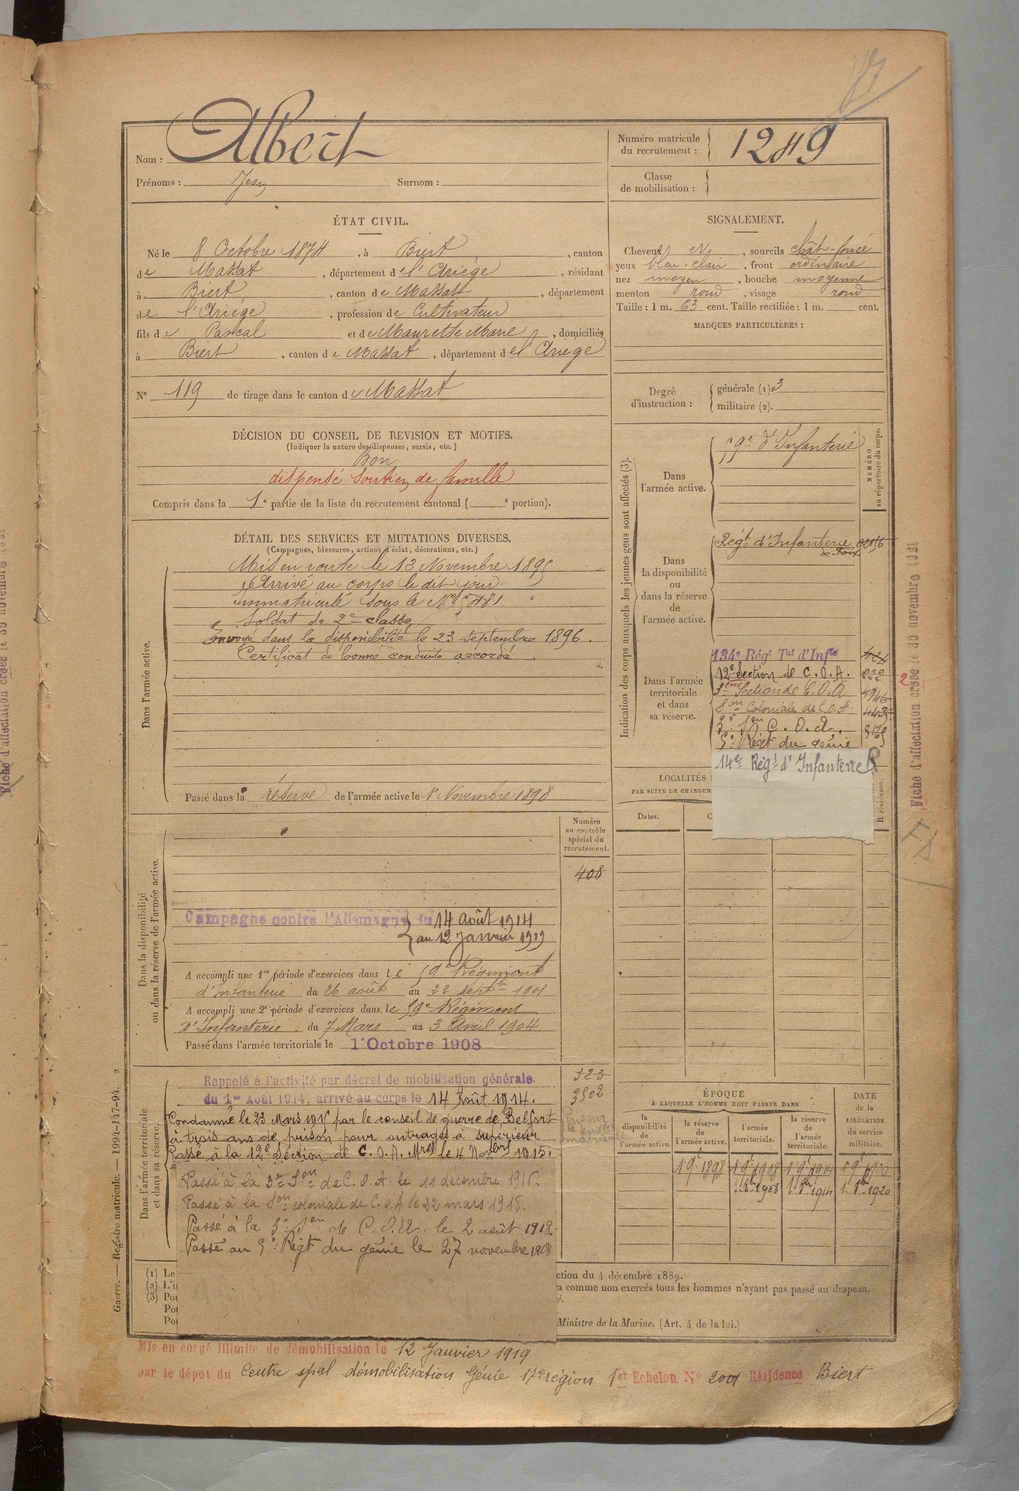 Nom : Albert
Prénoms : Jean Surnom :
Numéro matricule du recrutement : 1249
Classe de mobilisation :
ÉTAT CIVIL.
Né le 8 Octobre 1874, à Biert, canton
de Massat, département de l'Ariège, résidant
à Biert, canton de Massat, département
de l'Ariège, profession de Cultivateur
fils de Pascal et de Maurette Marie, domiciliés
à Biert, canton de Massat, département de l'Ariège
N° 119 de tirage dans le canton de Massat
SIGNALEMENT.
Cheveux sourcils chât-foncé
yeux bleu-clair, front ordinaire
nez moyen, bouche moyenne
menton rond, visage rond
Taille : 1 m. 63 cent. Taille rectifiée : 1 m. cent.
MARQUES PARTICULIÈRES :
Degré d'instruction : générale (1) 3
militaire (2).
DÉCISION DU CONSEIL DE REVISION ET MOTIFS.
(Indiquer la nature des dispenses, sursis, etc.)
Bon
dispensé Soutien de famille
Compris dans la 1e partie de la liste du recrutement cantonal ( e portion).
DÉTAIL DES SERVICES ET MUTATIONS DIVERSES.
(Campagnes, blessures, actions d'éclat, décorations, etc.)
Dans l'armée active.
Mis en route le 13 Novembre 1895
Arrivé au corps le dit jour
immatriculé sous le N°
Soldat de 2e classe
Envoyé dans la disponibilité le 23 Septembre 1896.
Certificat de bonne conduite accordé.
Passé dans la réserve de l'armée active le 1er Novembre 1898
Indication des corps auxquels les jeunes gens sont affectés (3).
NUMÉRO au répertoire du corps.
Dans l'armée active.
59e d'Infanterie
Dans la disponibilité ou dans la réserve de l'armée active.
Régt d'Infanterie
de Foix
Dans l'armée territoriale et dans sa réserve.
134e Régt Tal d'Infie
12e Section de C.O.A.
3ème Section de C.O.A.
Son Coloniale de C.O.A.
3e Son C.O.A.
5e Régt du génie
14e Régt d'Infanterie
LOCALITÉS
PAR SUITE DE CHANGEM
Dates.
Fiche d'affectation créée le 30 novembre 1921
Dans la disponibilité ou dans la réserve de l'armée active.
Numéro au contrôle spécial du recrutement.
408
Campagne contre l'Allemagne du 14 août 1914
au 12 janvier 1919
A accompli une 1re période d'exercices dans le 59e Régiment
d'infanterie du 26 août au 22 septbre 1901
A accompli une 2e période d'exercices dans le 59e Régiment
d'Infanterie du 7 Mars au 3 Avril 1904
Passé dans l'armée territoriale le 1er Octobre 1908
Dans l'armée territoriale et dans sa réserve.
323
3502
Rappelé à l'activité par décret de mobilisation générale
du 1er Août 1914, arrivé au corps le 14 Août 1914.
Condamné le 23 Mars 1915 par le conseil de guerre de Belfort
à trois ans de prison pour outrages à supérieur
Passé à la 12e Section de C.O.A. Mre le 4 Novbre 1915.
Passé à la 3e Son de C.O.A. le 11 décembre 1916.
Passé à la Son coloniale de C.O.A le 22 mars 1918.
Passé à la 3e Son de C.O.A. le 2 août 1918.
Passé au 5e Régt du génie le 27 novembre 1918
ÉPOQUE
À LAQUELLE L'HOMME DOIT PASSER DANS
la disponibilité de l'armée active.
la réserve de l'armée active.
l'armée territoriale.
la réserve de l'armée territoriale.
DATE de la LIBÉRATION du service militaire.
1 9e 1898 1 9e 1908 1 9e 1914 1 9e 1920
1 8e 1908 1 8e 1914 1 8e 1920
(1) Le
(2) L'i
(3) Pou
Pou
Pou
ction du 4 décembre 1889.
a comme non exercés tous les hommes n'ayant pas passé au drapeau.
Ministre de la Marine. (Art. 4 de la loi.)
Guerre. — Registre matricule. — 1991-147-94. 2
Mis en congé illimité de démobilisation le 12 Janvier 1919
par le dépôt du Centre spal démobilisation Génie 17e région 1er Echelon N° 2001 Résidence Biert